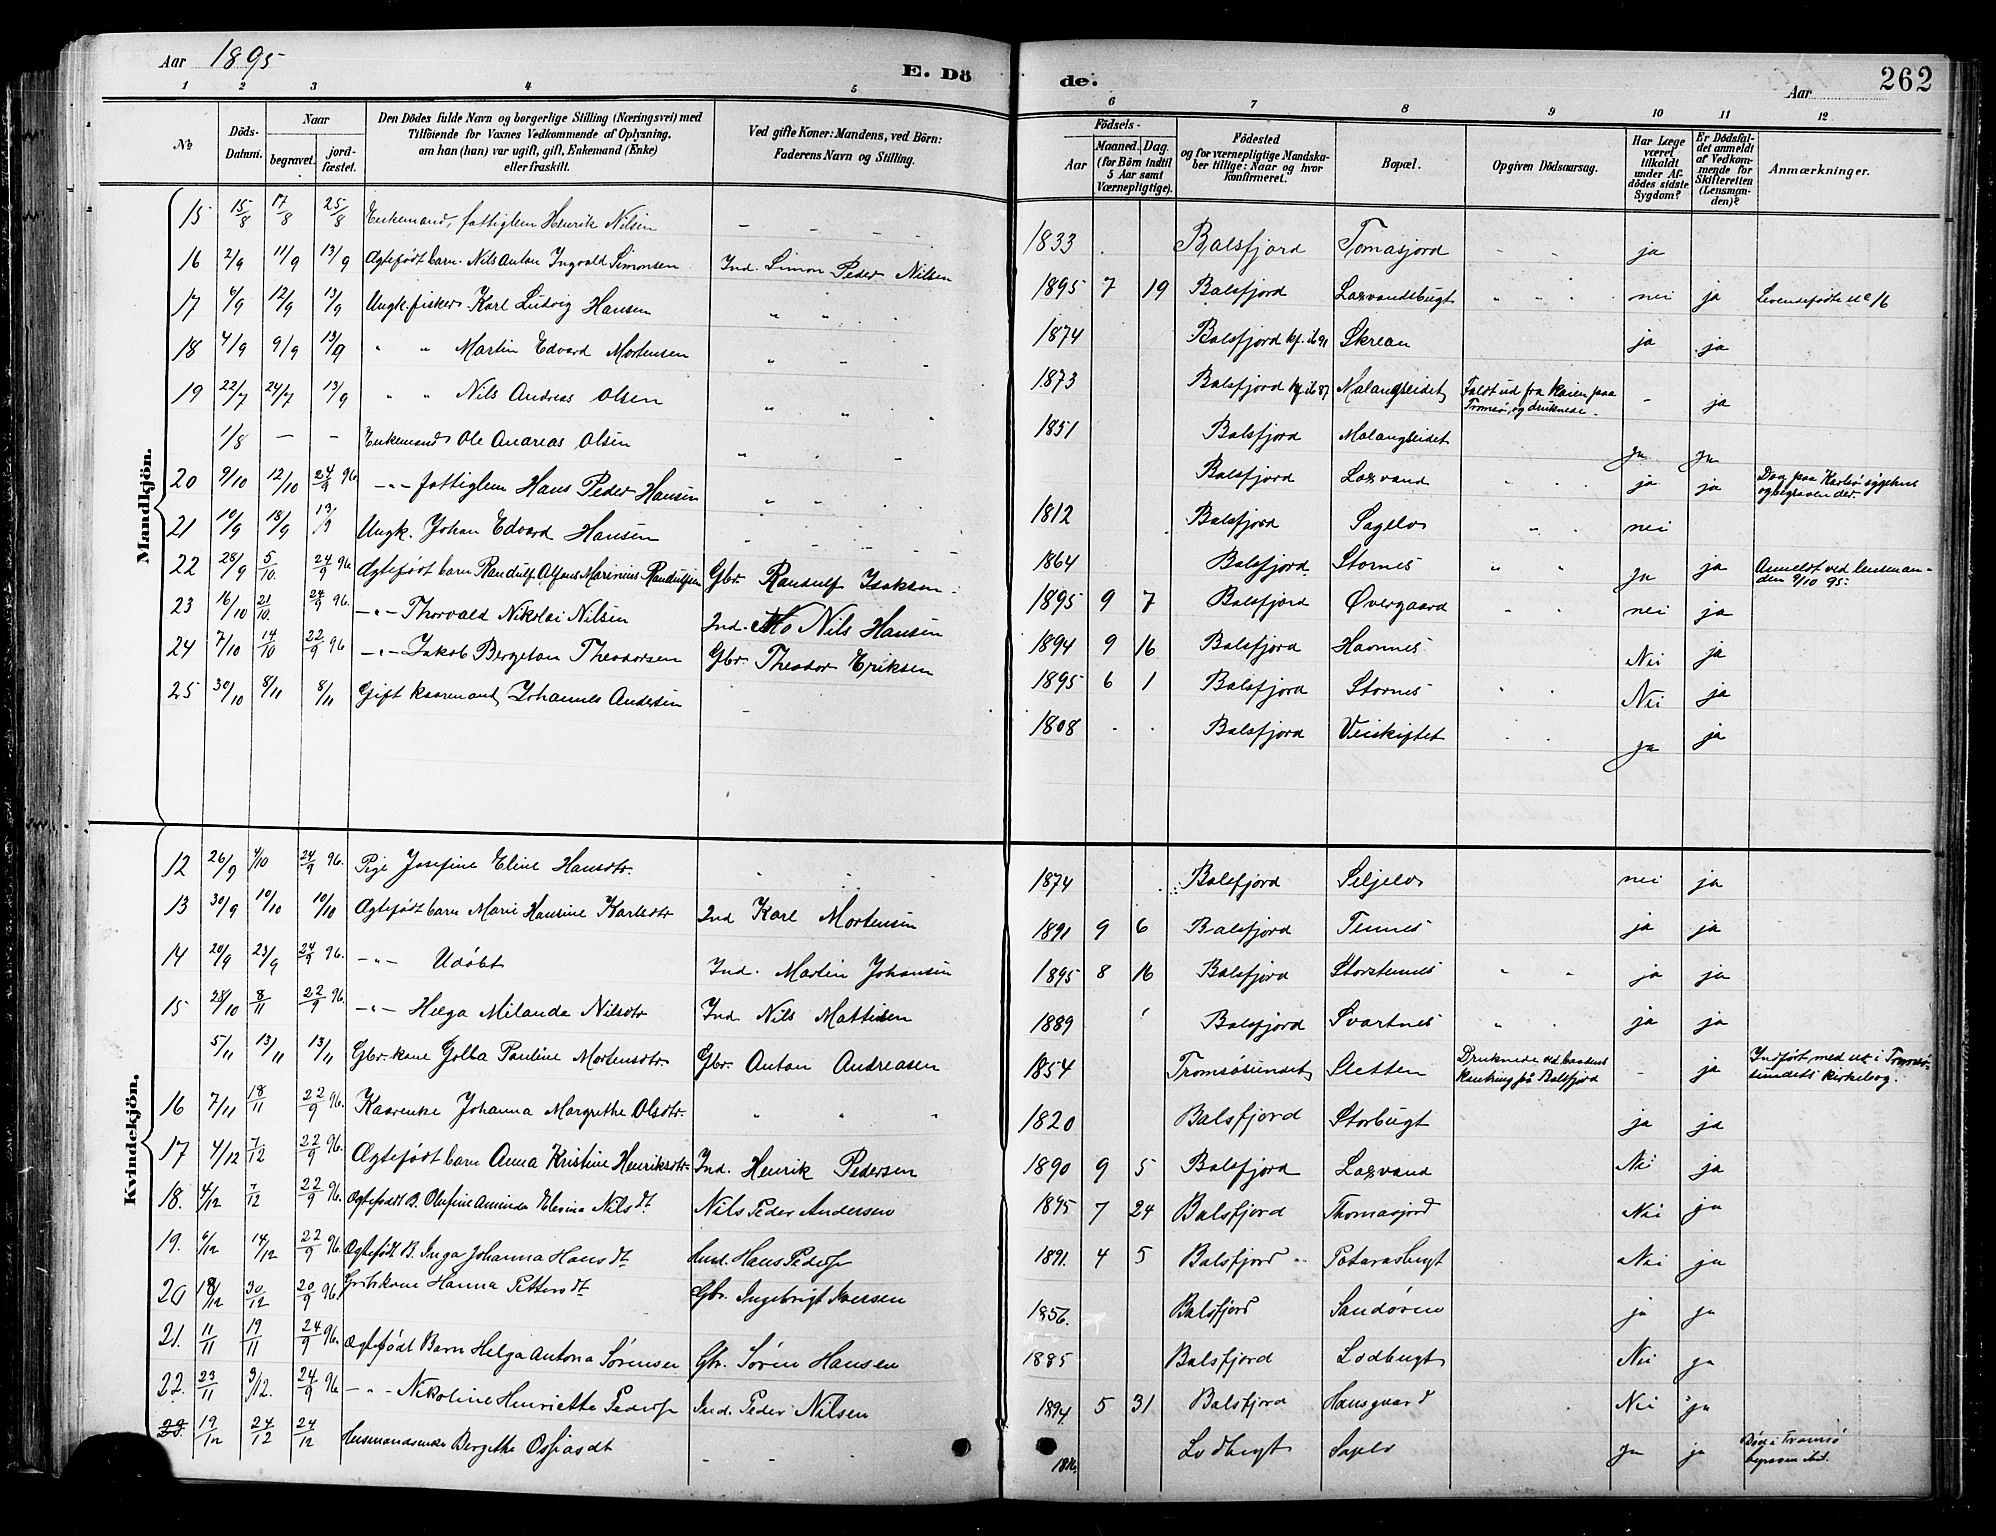 Aar 1895
E. Dö
de.
Aar
262
1 2 3 4 5 6 7 8 9 10 11 12
№
Döds-Datum.
Naar
begravet.
jord-fæstet.
Den Dödes fulde Navn og borgerlige Stilling (Næringsvei) med
Tilföiende for Voxnes Vedkommende af Oplysning,
om han (hun) var ugift, gift, Enkemand (Enke)
eller fraskilt.
Ved gifte Koner: Mandens, ved Börn:
Faderens Navn og Stilling.
Födsels-
Aar
Maaned. Dag.
(for Börn indtil
5 Aar samt
Værnepligtige).
Födested
og for værnepligtige Mandska-
ber tillige: Naar og hvor
konfirmeret.
Bopæl.
Opgiven Dödsaarsag.
Har Læge
været
tilkaldt
under Af-
dödes sidste
Sygdom?
Er Dödsfal-
det anmeldt
af Vedkom-
mende for
Skifteretten
(Lensman-
den)?
Anmærkninger.
Mandkjön.
15 15/8 17/8 25/8 Enkemand, fattiglem Henrik Nilsen 1833 Balsfjord Tomasjord ja
16 2/9 11/9 13/9 Ægtefødt barn Nils Anton Ingvald Simonsen Ind. Simon Peder Nilsen 1895 7 19 Balsfjord Laxvandsbugt nei ja Levendefødte no 16
17 6/9 12/9 13/9 Ungk. fisker Karl Ludvig Hansen 1874 Balsfjord kf. ib 91 Skrean ja ja
18 4/9 9/9 13/9 " " Martin Edvard Mortensen 1873 Balsfjord kf. ib 87 Malangseidet Faldt ud fra kaien paa Tromsø, og druknede. - ja
19 22/7 24/7 13/9 " " Nils Andreas Olsen 1851 Balsfjord Malangseidet ja ja
1/8 - - Enkemand Ole Andreas Olsen Balsfjord Laxvand ja ja Døg paa Karlsø sygehus og begraven der.
20 9/10 12/10 24/9 96 -"- fattiglem Hans Peder Hansen 1812 Balsfjord Sagelv nei
21 10/9 18/9 13/9 Ungk. Johan Edvard Hansen 1864 Balsfjord Stornes ja ja Anmeldt ved lensmanden 9/10 95.
22 28/9 5/10. 24/9 96. Ægtefødt barn Randulf Alfons Marinius Randulfsen Gbr. Randulf Isaksen. 1895 9 7 Balsfjord Øvergaard nei ja
23 16/10 21/10. 24/9 96. -"- Thorvald Nikolai Nilsen Ind. Nils Hansen 1894 9 16 Balsfjord Havnnes Nei ja
24 7/10 14/10 22/9 96 -"- Jakob Bergeton Theodorsen Gbr. Theodor Eriksen 1895 6 1 Balsfjord Stornes Nei ja
25 30/10 8/11 8/11 Gift kaarmand, Johannes Andersen 1808 Balsfjord Veiskiftet ja ja
Kvindekjön.
12 26/9 4/10 24/9 96. Pige Josefine Eline Hansdtr. 1874 Balsfjord Seljelv nei ja
13 30/9 10/10 10/10 Ægtefødt barn Marie Hansine Karlsdtr Ind Karl Mortensen 1891 9 6 Balsfjord Tennes ja ja
14 20/9 23/9 24/9 96. -"- Udøbt Ind. Martin Johansen 1895 8 16 Balsfjord Storstennes ja ja
15 28/10 8/11 22/9 96. -"- Helga Milanda Nilsdtr Ind Nils Mattisen 1889 Balsfjord Svartnes ja ja
5/11 13/11 13/11 Gbr. kone Golla Pauline Mortensdtr. Gbr. Anton Andreasen 1854 Tromsøsundet Sletten Druknede ved baadens kantring på Balsfjord - ja Indført med no i Tromsøsundets kirkebog.
16 7/11 18/11 22/9 96. Kaarenke Johanna Margrethe Olsdtr. 1820 Balsfjord Storbugt ja ja
17 4/12 7/12 22/9 96. Ægtefødt barn Anna Kristine Henriksdtr Ind. Henrik Pedersen 1890 9 5 Balsfjord Laxvand Nei ja
18. 4/12 7/12 22/9 96. Ægtefødt B. Olufine Aminda Elevina Nilsdt. Nils Peder Andersen 1895 7 24 Balsfjord Thomasjord Nei ja
19. 6/12 14/12 22/9 96. Ægtefødt B. Inga Johanna Hansdt. Ind. Hans Peders. 1891. 4 5 Balsfjord Potarasbugt Nei ja
20 18/12 30/12 20/9 96. Gbrs.kone Hanna Pettersdt. Gbr. Ingebrigt Iversen 1856. Balsfjord Sandøren ja ja
21. 11/11 19/11 24/9 96. Ægtefødt Barn Helga Antona Sørensen Gbr. Søren Hansen 1885 Balsfjord Lodbugt Nei ja
22. 23/11 9/12. 24/9 96. -"- Nikoline Henriette Peders. Ind. Peder Nilsen 1894. 5 31 Balsfjord Hansgaard Nei ja
23. 19/12 24/12 24/12 Husmandsenke Bergethe Ossiasdt 1816. Lodbugt Sagelv ja ja Død i Tromsø